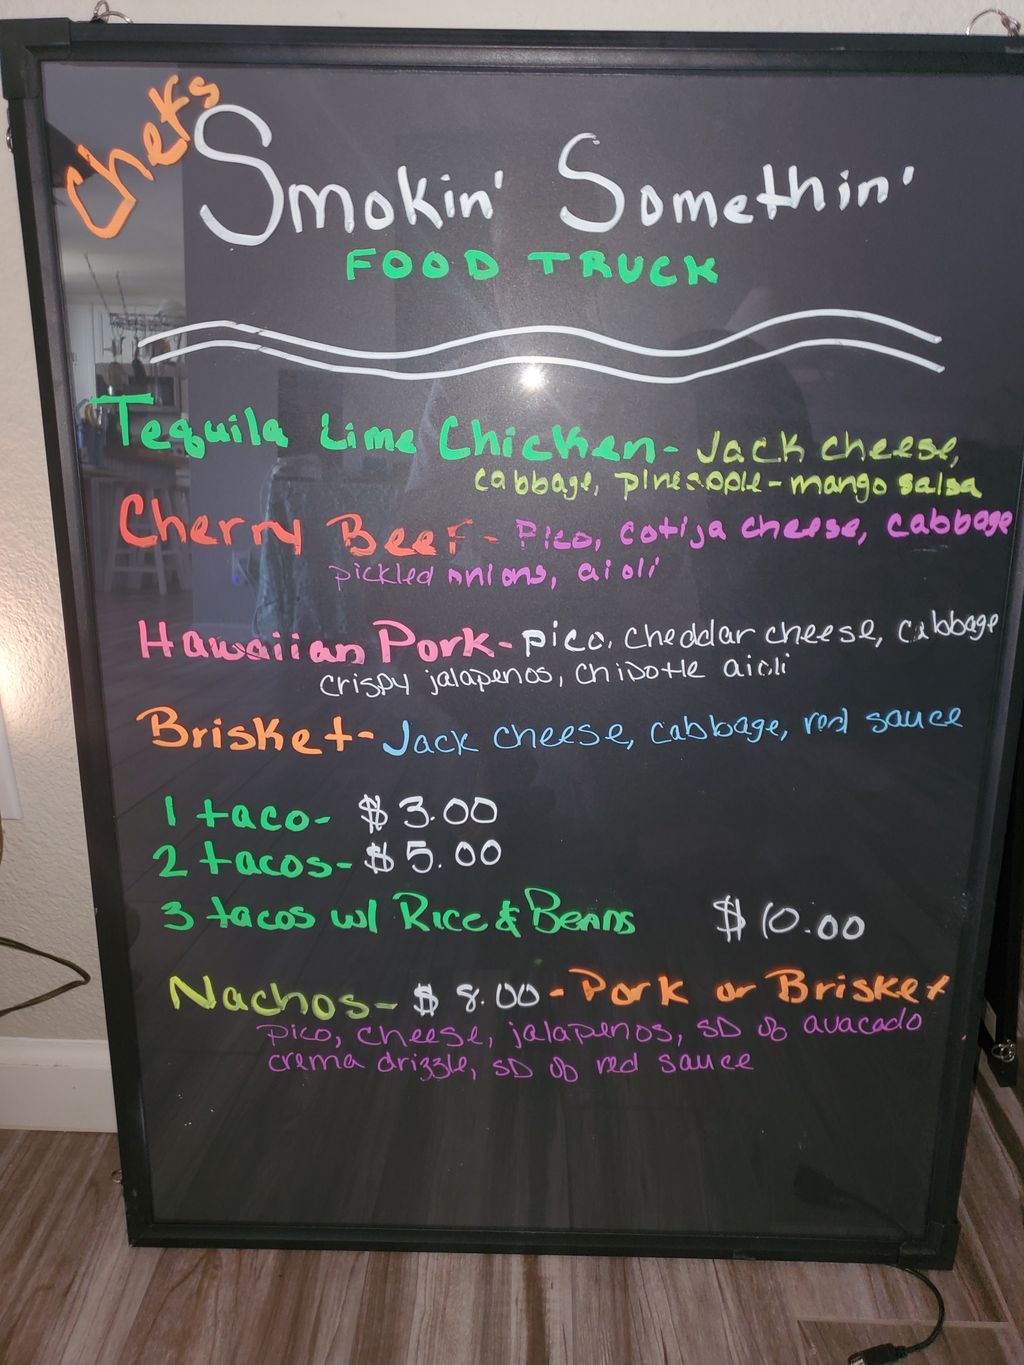 Chefs
Smokin' Somethin'
FOOD TRUCK
Tequila Lime Chicken - Jack cheese,
cabbage, pineapple - mango salsa
Cherry Beef - Pico, cotija cheese, cabbage
pickled onions, aioli
Hawaiian Pork - pico, cheddar cheese, cabbage
crispy jalapenos, chipotle aioli
Brisket - Jack cheese, cabbage, red sauce
1 taco - $3.00
2 tacos - $5.00
3 tacos w/ Rice & Beans $10.00
Nachos - $8.00 - Pork or Brisket
pico, cheese, jalapenos, SD of avacado
crema drizzle, SD of red sauce